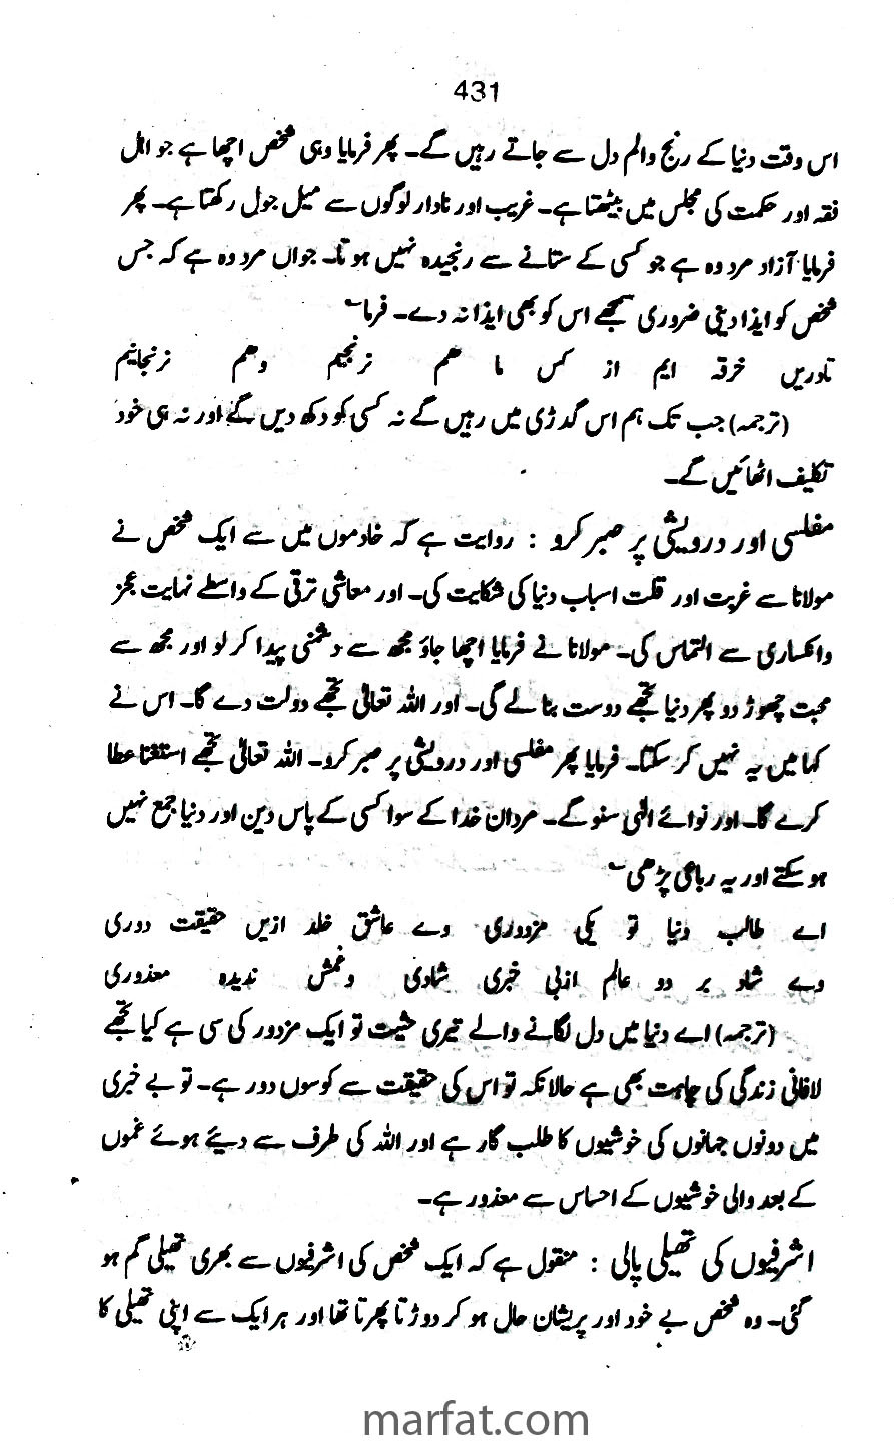 431
اس وقت دنیا کے رنج والم دل سے جاتے رہیں گے۔ پھر فرمایا وہی شخص اچھا ہے جو اہل
فقہ اور حکمت کی مجلس میں بیٹھتا ہے۔ غریب اور نادار لوگوں سے میل جول رکھتا ہے۔ پھر
فرمایا آزاد مرد وہ ہے جو کسی کے ستانے سے رنجیدہ نہیں ہوتا۔ جواں مرد وہ ہے کہ جس
شخص کو ایذا دینی ضروری سمجھے اس کو بھی ایذا نہ دے۔ فرما ؎
تادریں خرقہ ایم از کس ما ہم نرنجیم وہم نرنجانیم
(ترجمہ) جب تک ہم اس گدڑی میں رہیں گے نہ کسی کو دکھ دیں گے اور نہ ہی خود
تکلیف اٹھائیں گے۔
مفلسی اور درویشی پر صبر کرو : روایت ہے کہ خادموں میں سے ایک شخص نے
مولانا سے غربت اور قلت اسباب دنیا کی شکایت کی۔ اور معاشی ترقی کے واسطے نہایت عجز
وانکساری سے التماس کی۔ مولانا نے فرمایا اچھا جاؤ مجھ سے دشمنی پیدا کر لو اور مجھ سے
محبت چھوڑ دو پھر دنیا تجھے دوست بنا لے گی۔ اور اللہ تعالیٰ تجھے دولت دے گا۔ اس نے
کہا میں یہ نہیں کر سکتا۔ فرمایا پھر مفلسی اور درویشی پر صبر کرو۔ اللہ تعالیٰ تجھے استغنا عطا
کرے گا۔ اور نوائے الٰہی سنو گے۔ مردان خدا کے سوا کسی کے پاس دین اور دنیا جمع نہیں
ہو سکتے اور یہ رباعی پڑھی ؎
اے طالب دنیا تو یکی مزدوری وے عاشق خلد ازیں حقیقت دوری
وے شاد بر دو عالم ازبی خبری شادی وغمش ندیدہ معذوری
(ترجمہ) اے دنیا میں دل لگانے والے تیری حثیت تو ایک مزدور کی سی ہے کیا تجھے
لافانی زندگی کی چاہت بھی ہے حالانکہ تو اس کی حقیقت سے کوسوں دور ہے۔ تو بے خبری
میں دونوں جہانوں کی خوشیوں کا طلب گار ہے اور اللہ کی طرف سے دیئے ہوئے غموں
کے بعد والی خوشیوں کے احساس سے معذور ہے۔
اشرفیوں کی تھیلی پالی : منقول ہے کہ ایک شخص کی اشرفیوں سے بھری تھیلی گم ہو
گئی۔ وہ شخص بے خود اور پریشان حال ہو کر دوڑتا پھرتا تھا اور ہر ایک سے اپنی تھیلی کا
marfat.com